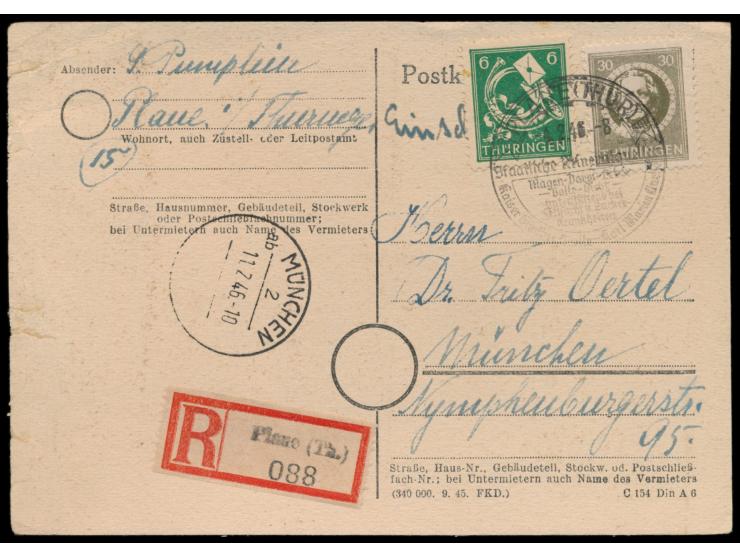 Absender: S. Pumplün
Plaue i/ Thüringen
Wohnort, auch Zustell- oder Leitpostamt
15
Straße, Hausnummer, Gebäudeteil, Stockwerk
oder Postschließfachnummer;
bei Untermietern auch Name des Vermieters
Postk
Einsch
6 6
THÜRINGEN
30 30
THÜRINGEN
(THÜR)
2.46.-8
Staatliche
MÜNCHEN
2
ab
11.2.46-10
R
Plaue (Th.)
088
Herrn
Dr. Fritz Oertel
München
Nymphenburgerstr.
95.
Straße, Haus-Nr., Gebäudeteil, Stockw. od. Postschließ-
fach-Nr.; bei Untermietern auch Name des Vermieters
(340 000. 9. 45. FKD.) C 154 Din A 6